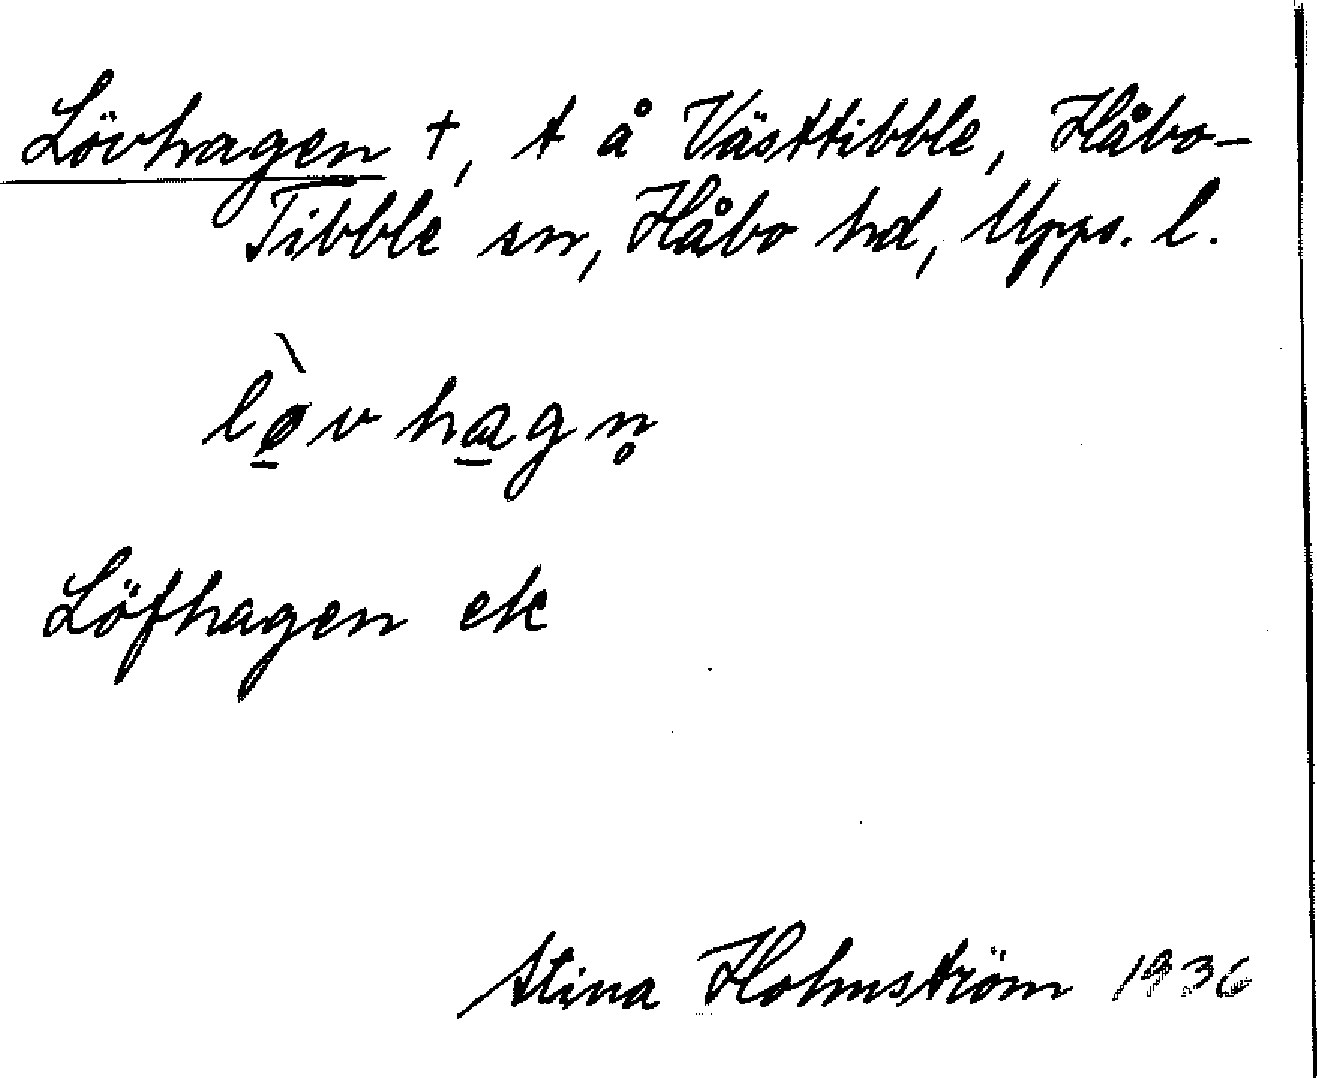 Lövhagen †, t å Västtibble, Håbo-
Tibble sn, Håbo hd, Upps. l.
lø̱̀v ha̱gn̥
Löfhagen ek
Stina Holmström 1936